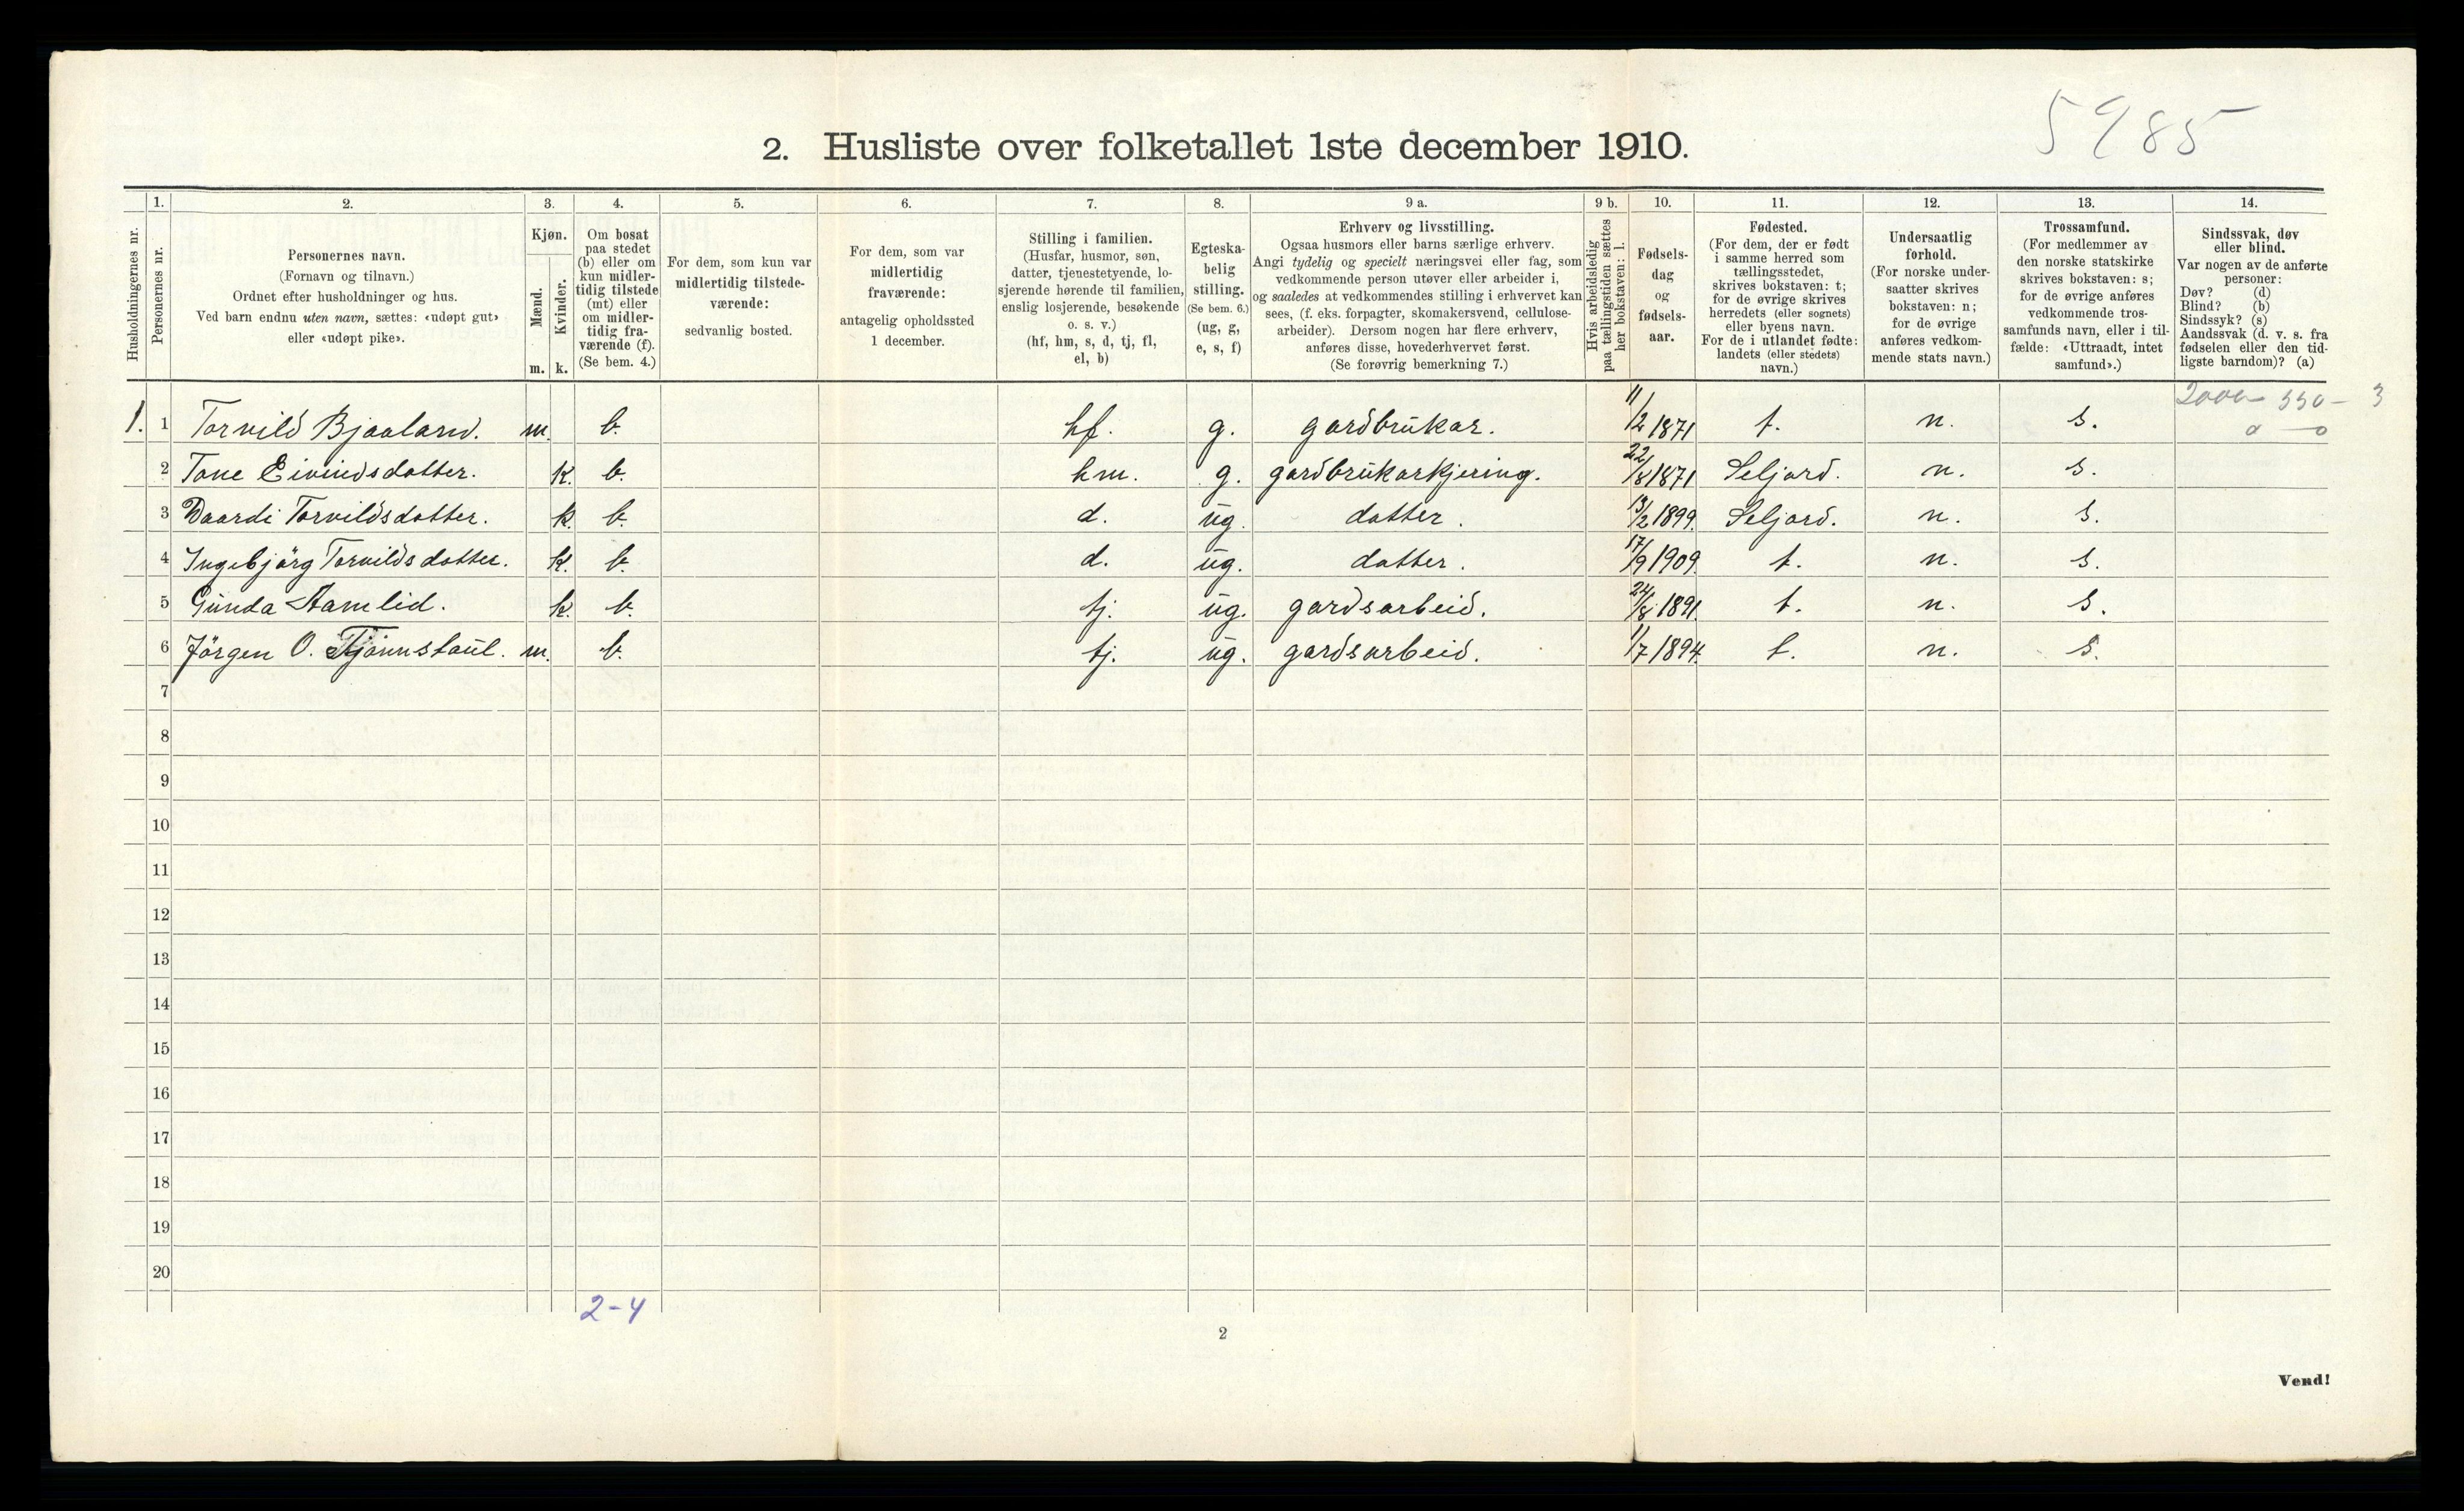 5985
2. Husliste over folketallet 1ste december 1910.
Husholdningernes nr.
1.
Personernes nr.
2.
Personernes navn.
(Fornavn og tilnavn.)
Ordnet efter husholdninger og hus.
Ved barn endnu uten navn, sættes: «udøpt gut»
eller «udøpt pike».
3.
Kjøn.
Mænd.
Kvinder.
m. k.
4.
Om bosat
paa stedet
(b) eller om
kun midler-
tidig tilstede
(mt) eller
om midler-
tidig fra-
værende (f).
(Se bem. 4.)
5.
For dem, som kun var
midlertidig tilstede-
værende:
sedvanlig bosted.
6.
For dem, som var
midlertidig
fraværende:
antagelig opholdssted
1 december.
7.
Stilling i familien.
(Husfar, husmor, søn,
datter, tjenestetyende, lo-
sjerende hørende til familien,
enslig losjerende, besøkende
o. s. v.)
(hf, hm, s, d, tj, fl,
el, b)
8.
Egteska-
belig
stilling.
(Se bem. 6.)
(ug, g,
e, s, f)
9 a.
Erhverv og livsstilling.
Ogsaa husmors eller barns særlige erhverv.
Angi tydelig og specielt næringsvei eller fag, som
vedkommende person utøver eller arbeider i,
og saaledes at vedkommendes stilling i erhvervet kan
sees, (f. eks. forpagter, skomakersvend, cellulose-
arbeider). Dersom nogen har flere erhverv,
anføres disse, hovederhvervet først.
(Se forøvrig bemerkning 7.)
9 b.
Hvis arbeidsledig
paa tællingstiden sættes
her bokstaven: l.
10.
Fødsels-
dag
og
fødsels-
aar.
11.
Fødested.
(For dem, der er født
i samme herred som
tællingsstedet,
skrives bokstaven: t;
for de øvrige skrives
herredets (eller sognets)
eller byens navn.
For de i utlandet fødte:
landets (eller stedets)
navn.)
12.
Undersaatlig
forhold.
(For norske under-
saatter skrives
bokstaven: n;
for de øvrige
anføres vedkom-
mende stats navn.)
13.
Trossamfund.
(For medlemmer av
den norske statskirke
skrives bokstaven: s;
for de øvrige anføres
vedkommende tros-
samfunds navn, eller i til-
fælde: «Uttraadt, intet
samfund».)
14.
Sindssvak, døv
eller blind.
Var nogen av de anførte
personer:
Døv? (d)
Blind? (b)
Sindssyk? (s)
Aandssvak (d. v. s. fra
fødselen eller den tid-
ligste barndom)? (a)
1. 1 Torvild Bjaaland. m. b. hf. g. gardbrukar. 11/2 1871 t. n. s. 550 - 3
2 Tone Eivindsdotter. k. b. hm. g. gardbrukarkjering. 22/8 1871 Seljord. n. s.
3 Daardi Torvildsdotter. k. b. d. ug. dotter. 13/2 1899. Seljord. n. s.
4 Ingebjörg Torvildsdotter. k. b. d. ug. dotter. 17/9 1909. t. n. s.
5 Gunda Aamlid. k. b. tj. ug. gardsarbeid. 24/8 1891. t. n. s.
6 Jörgen O. Tjönnstaul. m. b. tj. ug. gardsarbeid. 1/7 1894. t. n. s.
7
8
9
10
11
12
13
14
15
16
17
18
19
20
2-4
2
Vend!